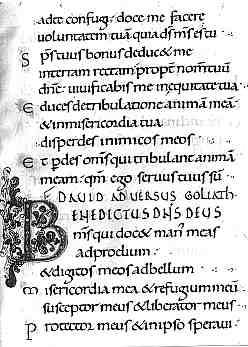 ad te confugi · doce me facere
voluntatem tuã quia d̃s m̃s es tu
Sp̃s tuus bonus deduc& me
in terram rectam · propt̃ nom̃ tuũ
dñe · uiuificabis me in equitate tua
Educes de tribulatione animã meã
& in misericordia tua
disperdes inimicos meos
Et p̃des om̃s qui tribulant animã
meam · qm̃ ego seruus tuus sũ
DAUID ADVERSUS GOLIATH
BENEDICTUS DÑS DEUS
m̃s qui doc& man meas
ad proelium ·
& digitos meos ad bellum
Misericordia mea & refugium meũ
susceptor meus & liberator meus
Protector meus & in ipso speraui ·